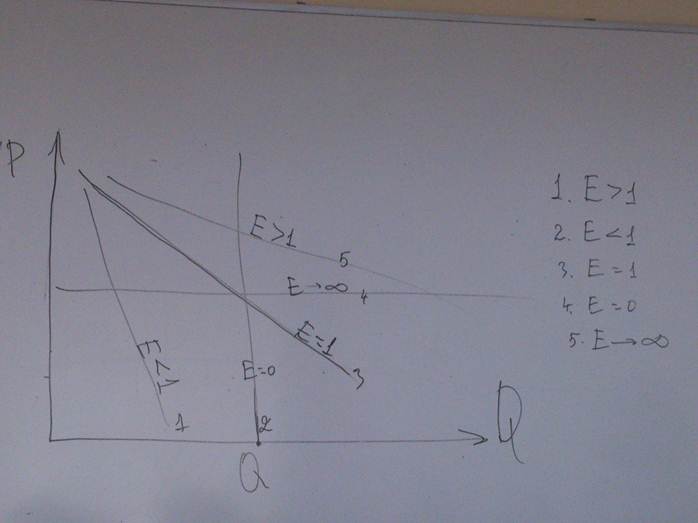 P
E>1
5
E→∞ 4
E=1
3
E<1
1
E=0
2
Q
Q
1. E>1
2. E<1
3. E=1
4. E=0
5. E→∞